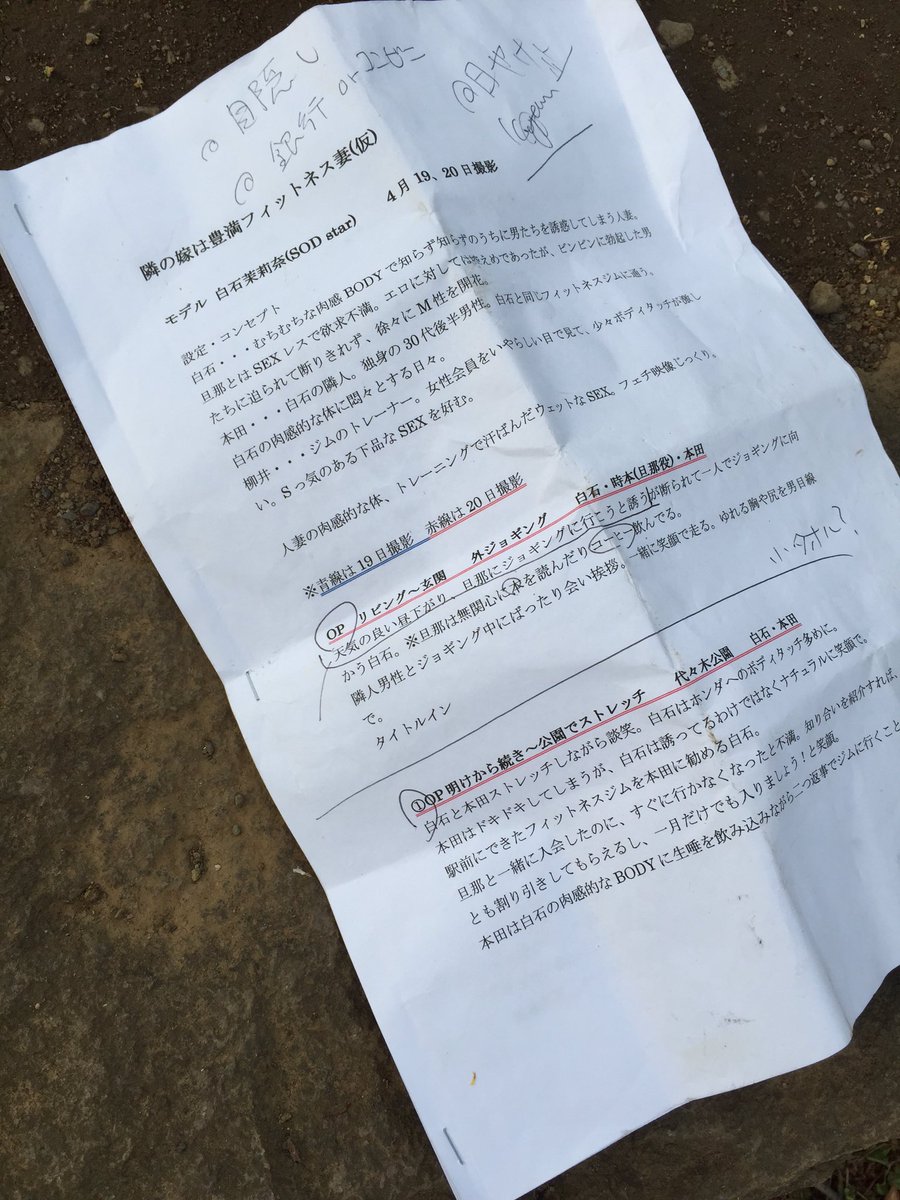 @ 目隠し
@ 銀行 or コンビニ
@日ヤケ止
隣の嫁は豊満フィットネス妻(仮)
モデル 白石茉莉奈(SOD star) 4月19、20日撮影
設定・コンセプト
白石・・・むちむちな肉感BODYで知らず知らずのうちに男たちを誘惑してしまう人妻。
旦那とはSEXレスで欲求不満。エロに対しては控えめであったが、ビンビンに勃起した男
たちに迫られて断りきれず、徐々にM性を開花。
本田・・・白石の隣人。独身の30代後半男性。白石と同じフィットネスジムに通う。
白石の肉感的な体に悶々とする日々。
柳井・・・ジムのトレーナー。女性会員をいやらしい目で見て、少々ボディタッチが激し
い。Sっ気のある下品なSEXを好む。
人妻の肉感的な体、トレーニングで汗ばんだウェットなSEX。フェチ映像じっくり。
※青線は19日撮影 赤線は20日撮影
OP リビング～玄関 外ジョギング 白石・時本(旦那役)・本田
天気の良い昼下がり、旦那にジョギングに行こうと誘うが断られて一人でジョギングに向
かう白石。※旦那は無関心に本を読んだりコーヒー飲んでる。
隣人男性とジョギング中にばったり会い挨拶。一緒に笑顔で走る。ゆれる胸や尻を男目線
で。
小タオル?
タイトルイン
①OP明けから続き～公園でストレッチ 代々木公園 白石・本田
白石と本田ストレッチしながら談笑。白石はホンダへのボディタッチ多めに。
本田はドキドキしてしまうが、白石は誘ってるわけではなくナチュラルに笑顔で。
駅前にできたフィットネスジムを本田に勧める白石。
旦那と一緒に入会したのに、すぐに行かなくなったと不満。知り合いを紹介すれば、
とも割り引きしてもらえるし、一月だけでも入りましょう！と笑顔。
本田は白石の肉感的なBODYに生唾を飲み込みながら二つ返事でジムに行くこと